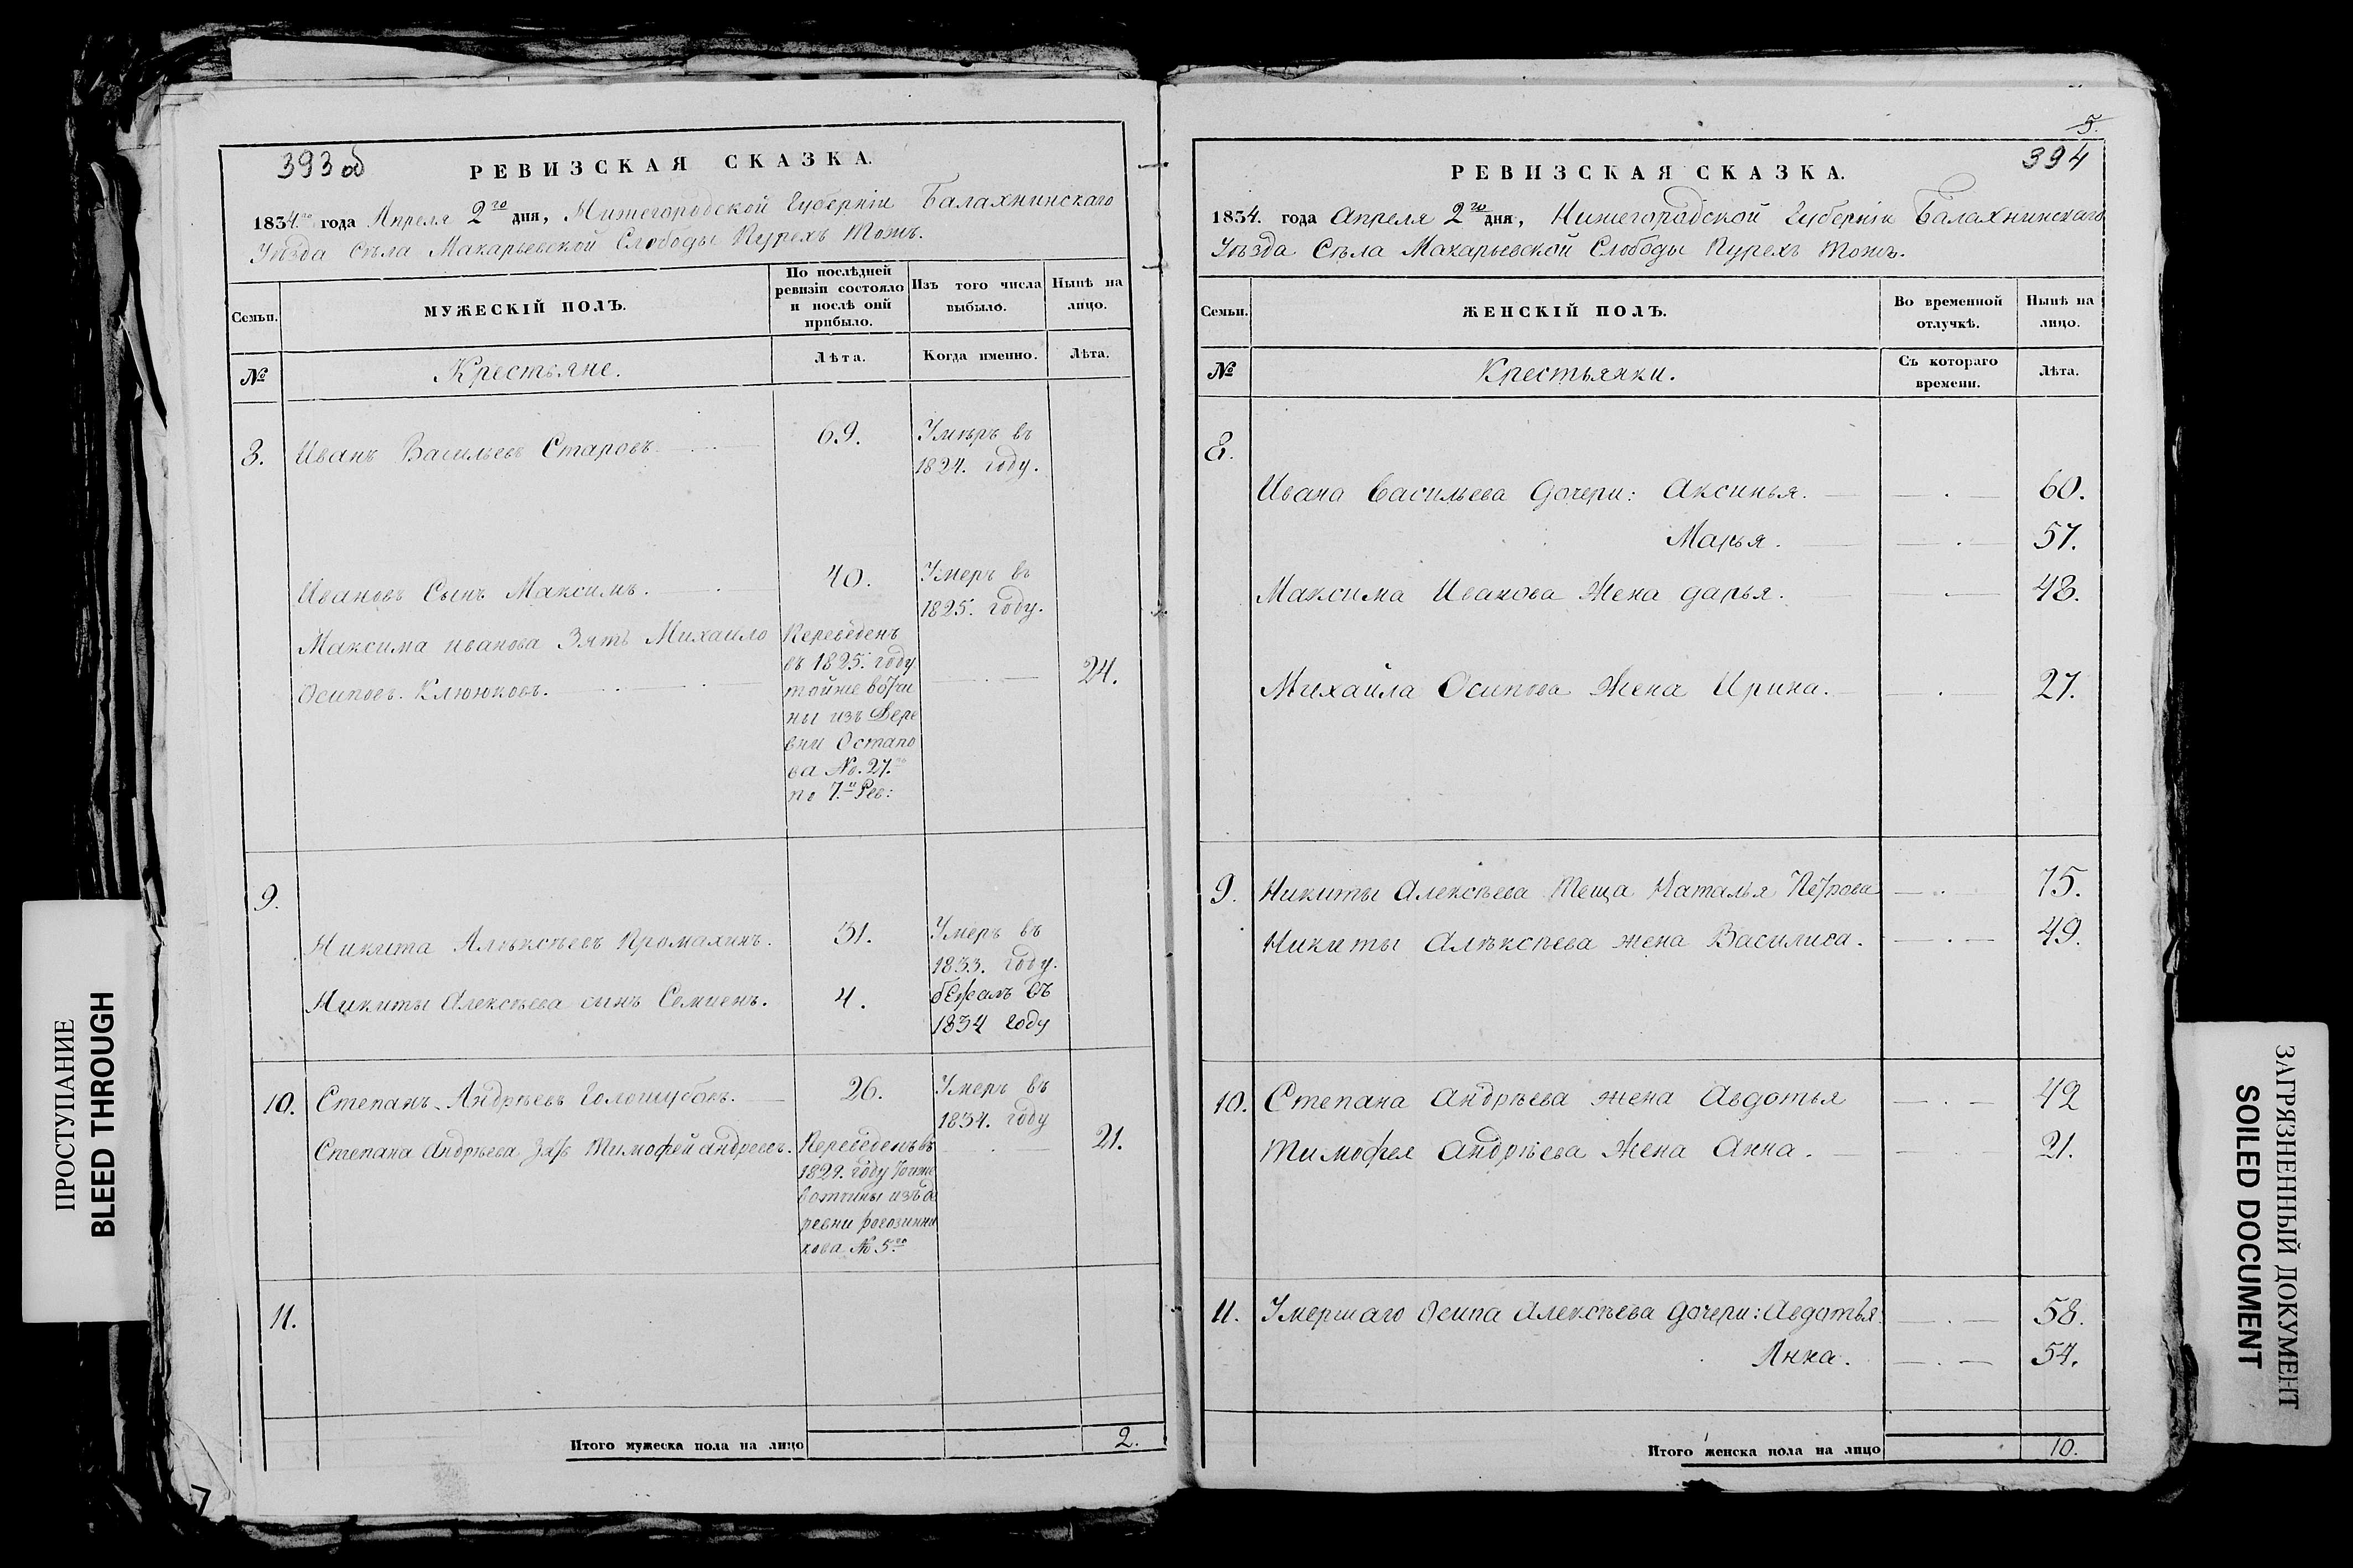 393 об
РЕВИЗСКАЯ СКАЗКА.
1834.го года Апреля 2го дня, Нижегородской Губернiи Балахнинскаго
Уѣзда Села Макарьевской Слободы Пурехъ тожъ.
Семьи.
МУЖЕСКIЙ ПОЛЪ.
По послѣдней ревизiи состояло и послѣ оной прибыло.
Изъ того числа выбыло.
Нынѣ на лицо.
№
Крестьяне.
Лѣта.
Когда именно.
Лѣта.
8. Иванъ Васильевъ Старовъ 69. Умѣръ въ
1824. году.
Ивановъ Сынъ Максимъ. 40. Умеръ въ
1825. году.
Максима иванова Зять Михайло Переведенъ
Осиповъ. Клюковъ. въ 1825. году 24.
тойже вотчи
ны изъ Дере
вни Остапо
ва №. 27.го
по 7.й Рев:
9.
Никита Алѣксѣевъ Промахинъ. 31. Умеръ въ
1833. году.
Никиты Алексѣева сынъ Семиенъ. 4. бежалъ въ
1834 году
10. Степанъ Андрѣевъ Голошубовъ. 26. Умеръ въ
1834. году
Степана Андрѣева Зять Тимофей андреевъ. Переведенъ въ 21.
1829. году тоиже
вотчины изъ де
ревни рогозинни
кова № 5го
11.
Итого мужеска пола на лицо 2.
5.
394
РЕВИЗСКАЯ СКАЗКА.
1834. года Апреля 2го дня, Нижегородской Губернiи Балахнинскаго
Уѣзда Села Макарьевской Слободы Пурехъ тожъ.
Семьи.
ЖЕНСКIЙ ПОЛЪ.
Во временной отлучкѣ.
Нынѣ на лицо.
№
Крестьянки.
Съ котораго времени.
Лѣта.
8.
Ивана Васильева Дочери: Аксинья. 60.
Марья. 57.
Максима Иванова Жена дарья. 48.
Михайла Осипова Жена Ирина. 27.
9. Никиты Алексѣева Теща Наталья Петрова 75.
Никиты Алѣксѣева жена Василиса. 49.
10. Степана Андрѣева жена Авдотья 42
Тимофея Андрѣева Жена Анна. 21.
11. Умершаго Осипа Алексѣева Дочери: Авдотья. 58.
Анна. 54.
Итого женска пола на лицо 10.
ПРОСТУПАНИЕ
BLEED THROUGH
ЗАГРЯЗНЕННЫЙ ДОКУМЕНТ
SOILED DOCUMENT